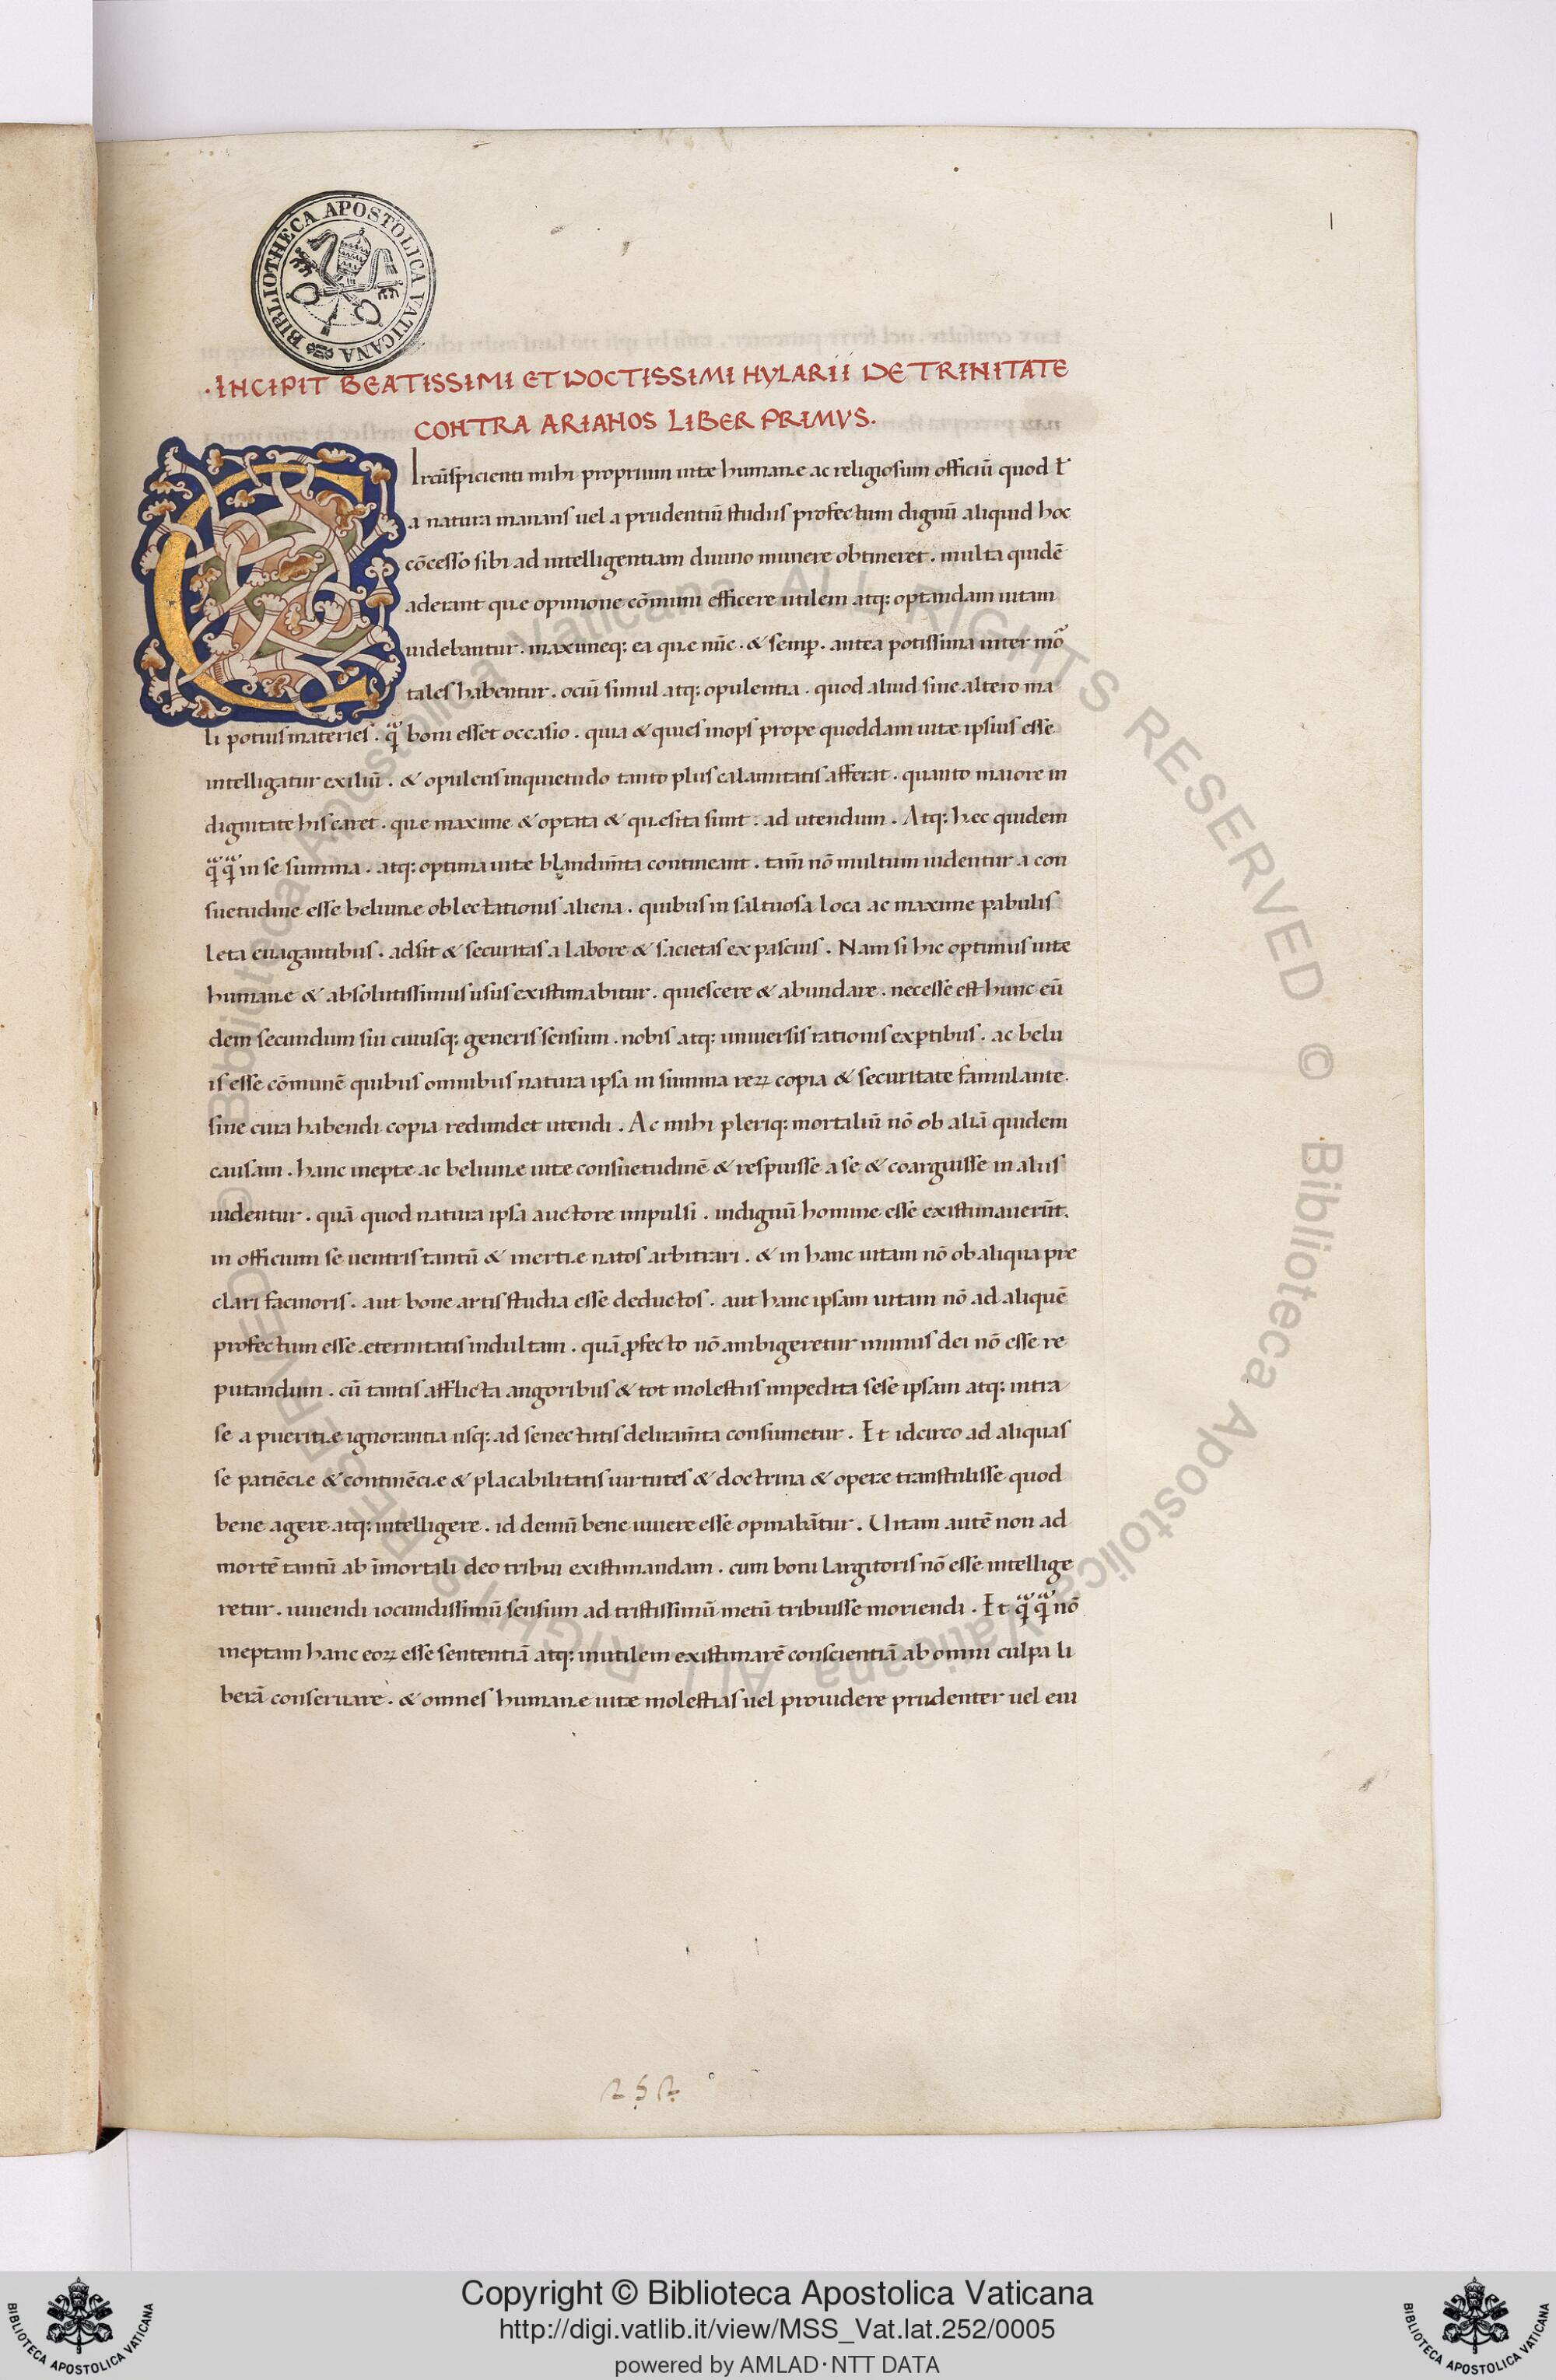 BIBLIOTHECA APOSTOLICA VATICANA
1
·INCIPIT BEATISSIMI ET DOCTISSIMI HYLARII DE TRINITATE
CONTRA ARIANOS LIBER PRIMVS.
CIrcũspicienti mihi proprium uitæ humanæ ac religiosum officiũ quod ł
a natura manans uel a prudentiũ studiis profectum dignũ aliquid hoc
cõcesso sibi ad intelligentiam diuino munere obtineret . multa quidẽ
aderant quæ opinione cõmuni efficere utilem atq; optandam uitam
uidebantur . maximeq; ea quæ nũc . & semp̱ . antea potissima inter moͬ
tales habentur . ociũ simul atq; opulentia . quod aliud sine altero ma
li potius materies . qͣ boni esset occasio . quia & quies inops prope quoddam uitæ ipsius esse
intelligatur exiliũ . & opulens inquietudo tanto plus calamitatis afferat . quanto maiore in
dignitate his caret . quæ maxime & optata & quæsita sunt . ad utendum . Atq; hæc quidem
qͣqͣ in se summa . atq; optima uitæ blandim̃ta contineant . tam̃ nõ multum uidentur a con
suetudine esse beluinæ oblectationis aliena . quibus in saltuosa loca ac maxime pabulis
læta euagantibus . adsit & securitas a labore & sacietas ex pascuis . Nam si hic optimus uitæ
humanæ & absolutissimus usus existimabitur . quiescere & abundare . necesse est hunc eũ
dem secundum sui cuiusq; generis sensum . nobis atq; uniuersis rationis exp̱tibus . ac belu
is esse cõmunẽ quibus omnibus natura ipsa in summa reꝝ copia & securitate famulante.
sine cura habendi copia redundet utendi . Ac mihi pleriq; mortaliũ nõ ob aliã quidem
causam . hanc ineptæ ac beluinæ uitæ consuetudinẽ & respuisse a se & coarguisse in aliis
uidentur . quã quod natura ipsa auctore impulsi . indignũ homine esse existimauerũt.
in officium se uentris tantũ & inertiæ natos arbitrari . & in hanc uitam nõ ob aliqua pre
clari facinoris . aut bone artis studia esse deductos . aut hanc ipsam uitam nõ ad aliquẽ
profectum esse æternitatis indultam . quã ꝓfecto nõ ambigeretur munus dei nõ esse re
putandum . cũ tantis afflicta angoribus & tot molestiis impedita sese ipsam atq; intra
se a pueritiæ ignorantia usq; ad senectutis deliram̃ta consumetur . Et idcirco ad aliquas
se patiẽciæ & continẽciæ & placabilitatis uirtutes & doctrina & opere transtulisse quod
bene agere atq; intelligere . id demũ bene uiuere esse opinabãtur . Uitam autẽ non ad
mortẽ tantũ ab ĩmortali deo tribui existimandam . cum boni largitoris nõ esse intellige
retur . uiuendi iocundissimũ sensum ad tristissimũ metũ tribuisse moriendi . Et qͣqͣ nõ
ineptam hanc eoꝝ esse sententiã atq; inutilem existimarẽ conscientiã ab omni culpa li
berã conseruare . & omnes humanæ uitæ molestias uel prouidere prudenter uel eui
252
© Biblioteca Apostolica Vaticana ALL RIGHTS RESERVED © Biblioteca Apostolica Vaticana ALL RIGHTS RESERVED
Copyright © Biblioteca Apostolica Vaticana
http://digi.vatlib.it/view/MSS_Vat.lat.252/0005
powered by AMLAD·NTT DATA
BIBLIOTECA APOSTOLICA VATICANA
BIBLIOTECA APOSTOLICA VATICANA